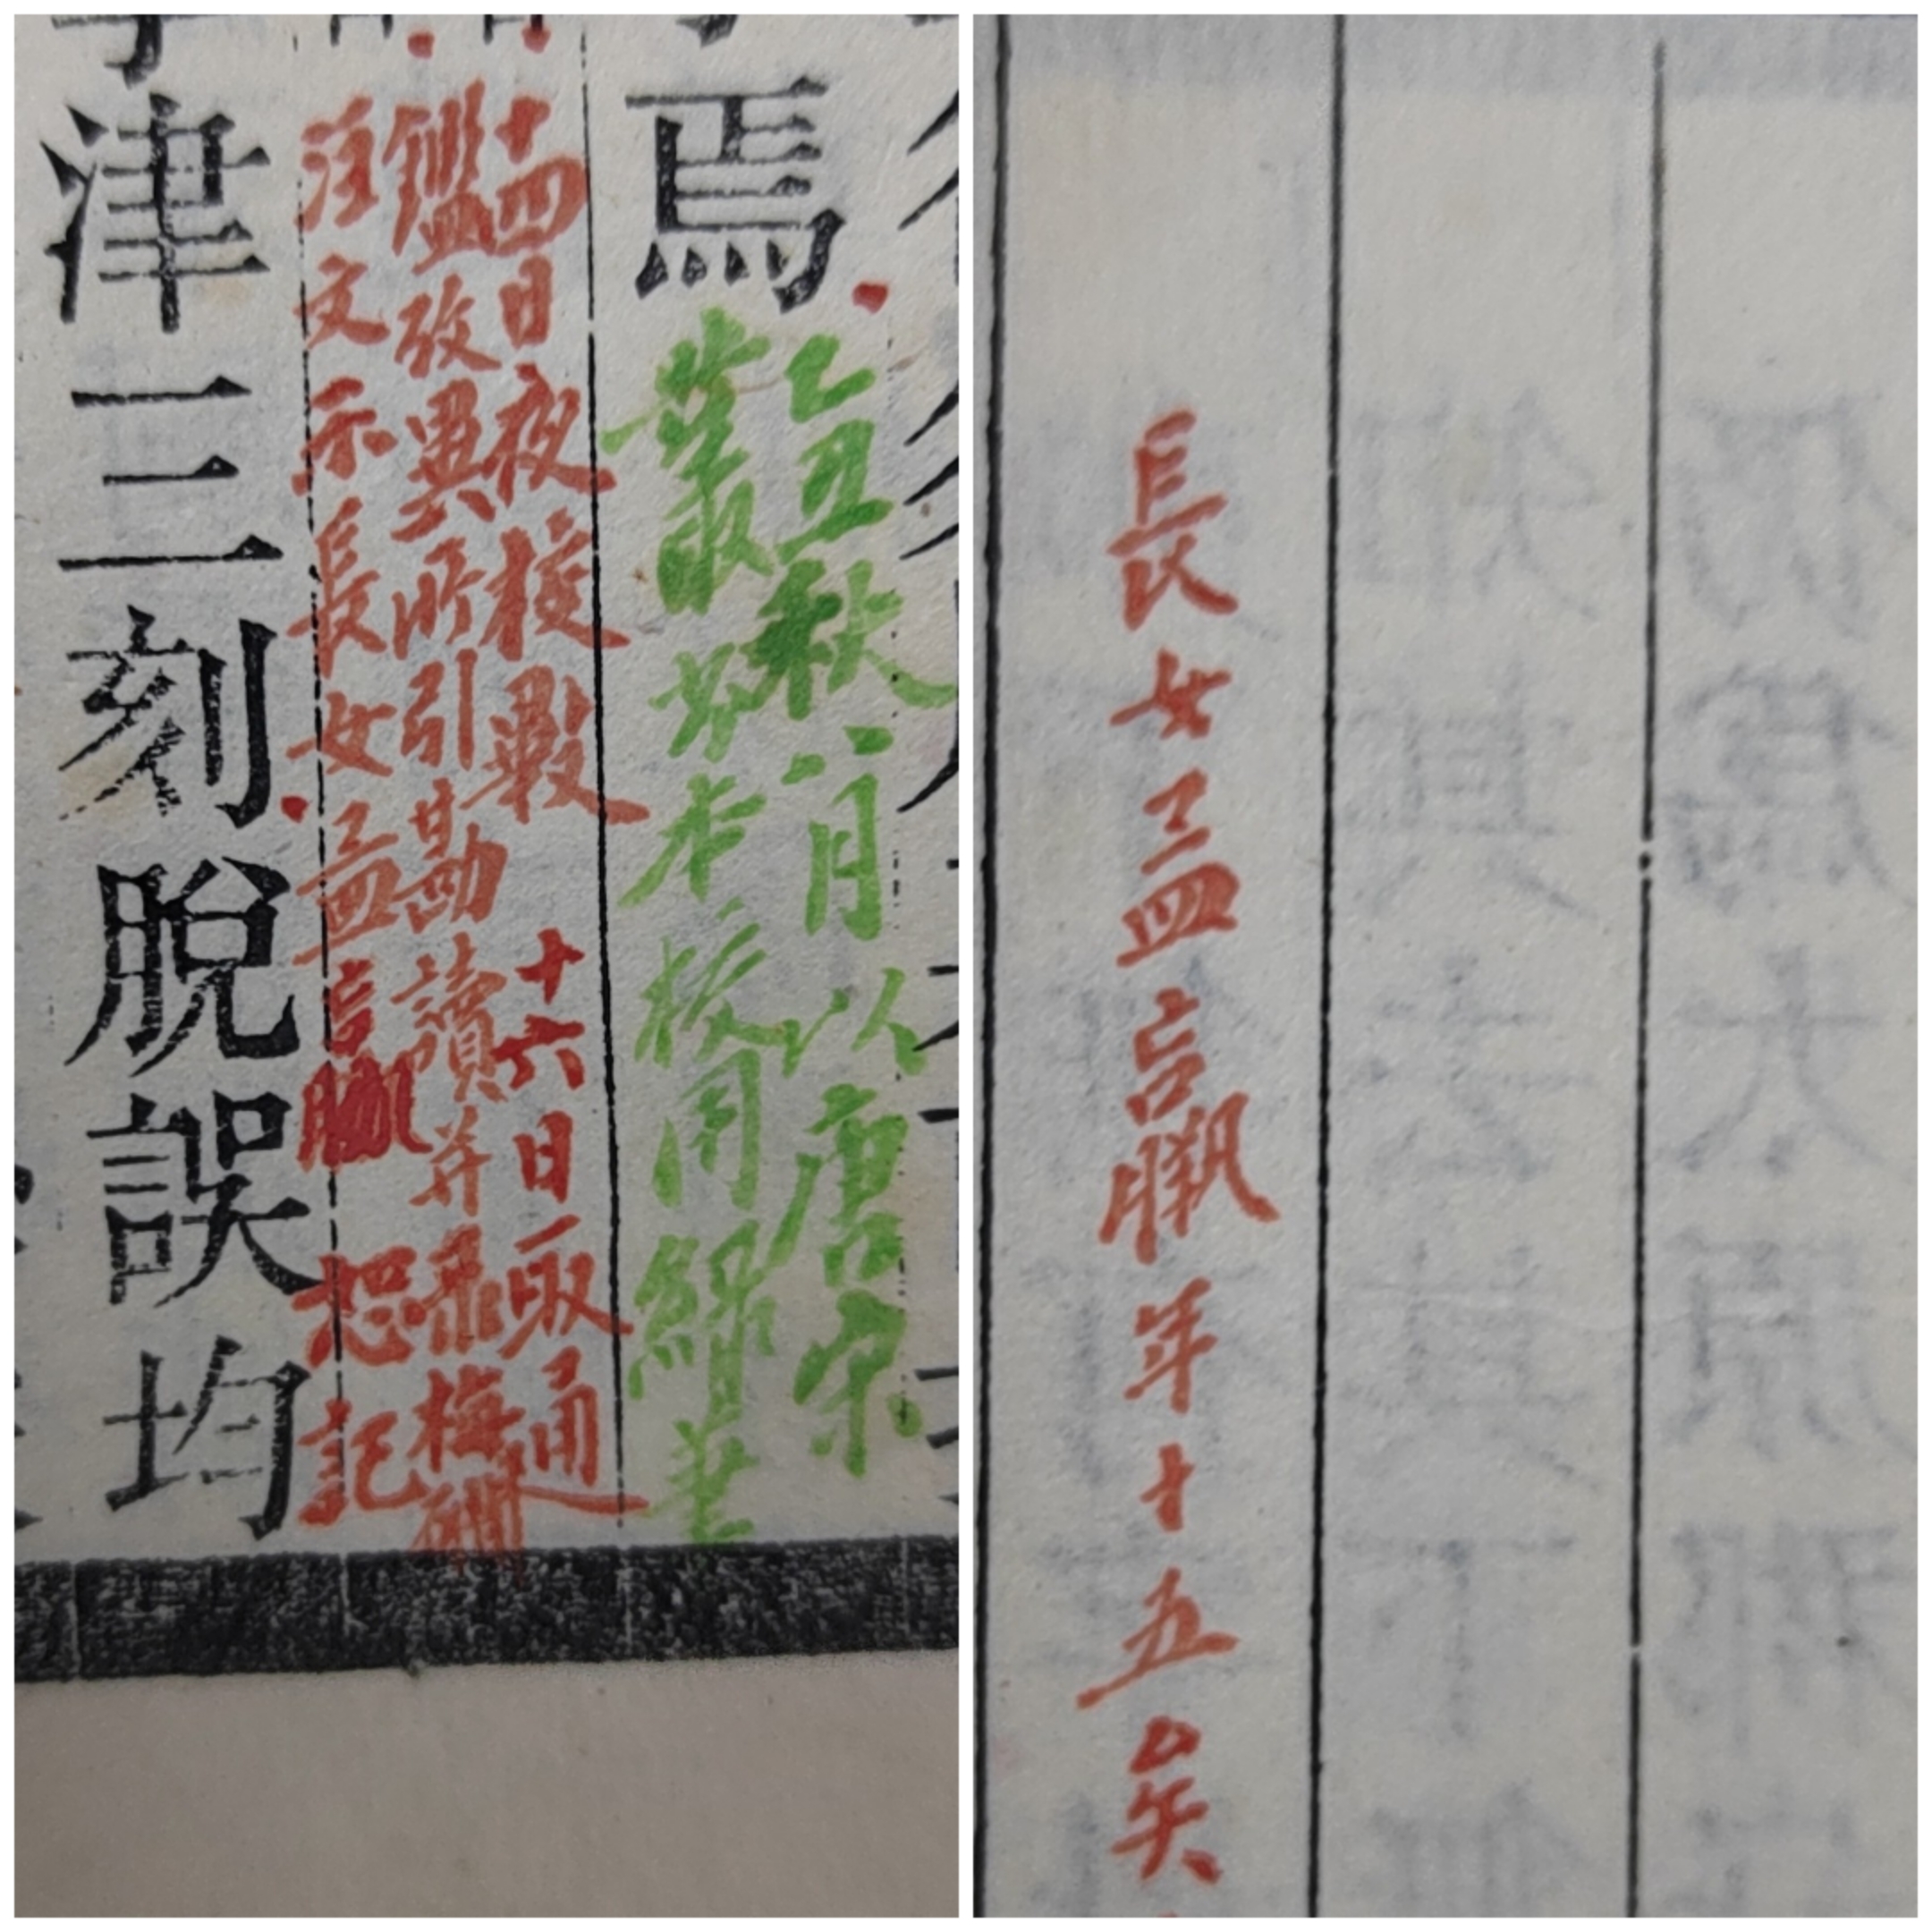 焉
乙丑秋八月以唐宋
叢書本校用綠筆
十四日夜校斠 十六日取通
鑑攷異所引勘讀并乖梅磵
注文示長女孟嬴 恕記
津三刻脫誤均
長女孟嬴年十五矣